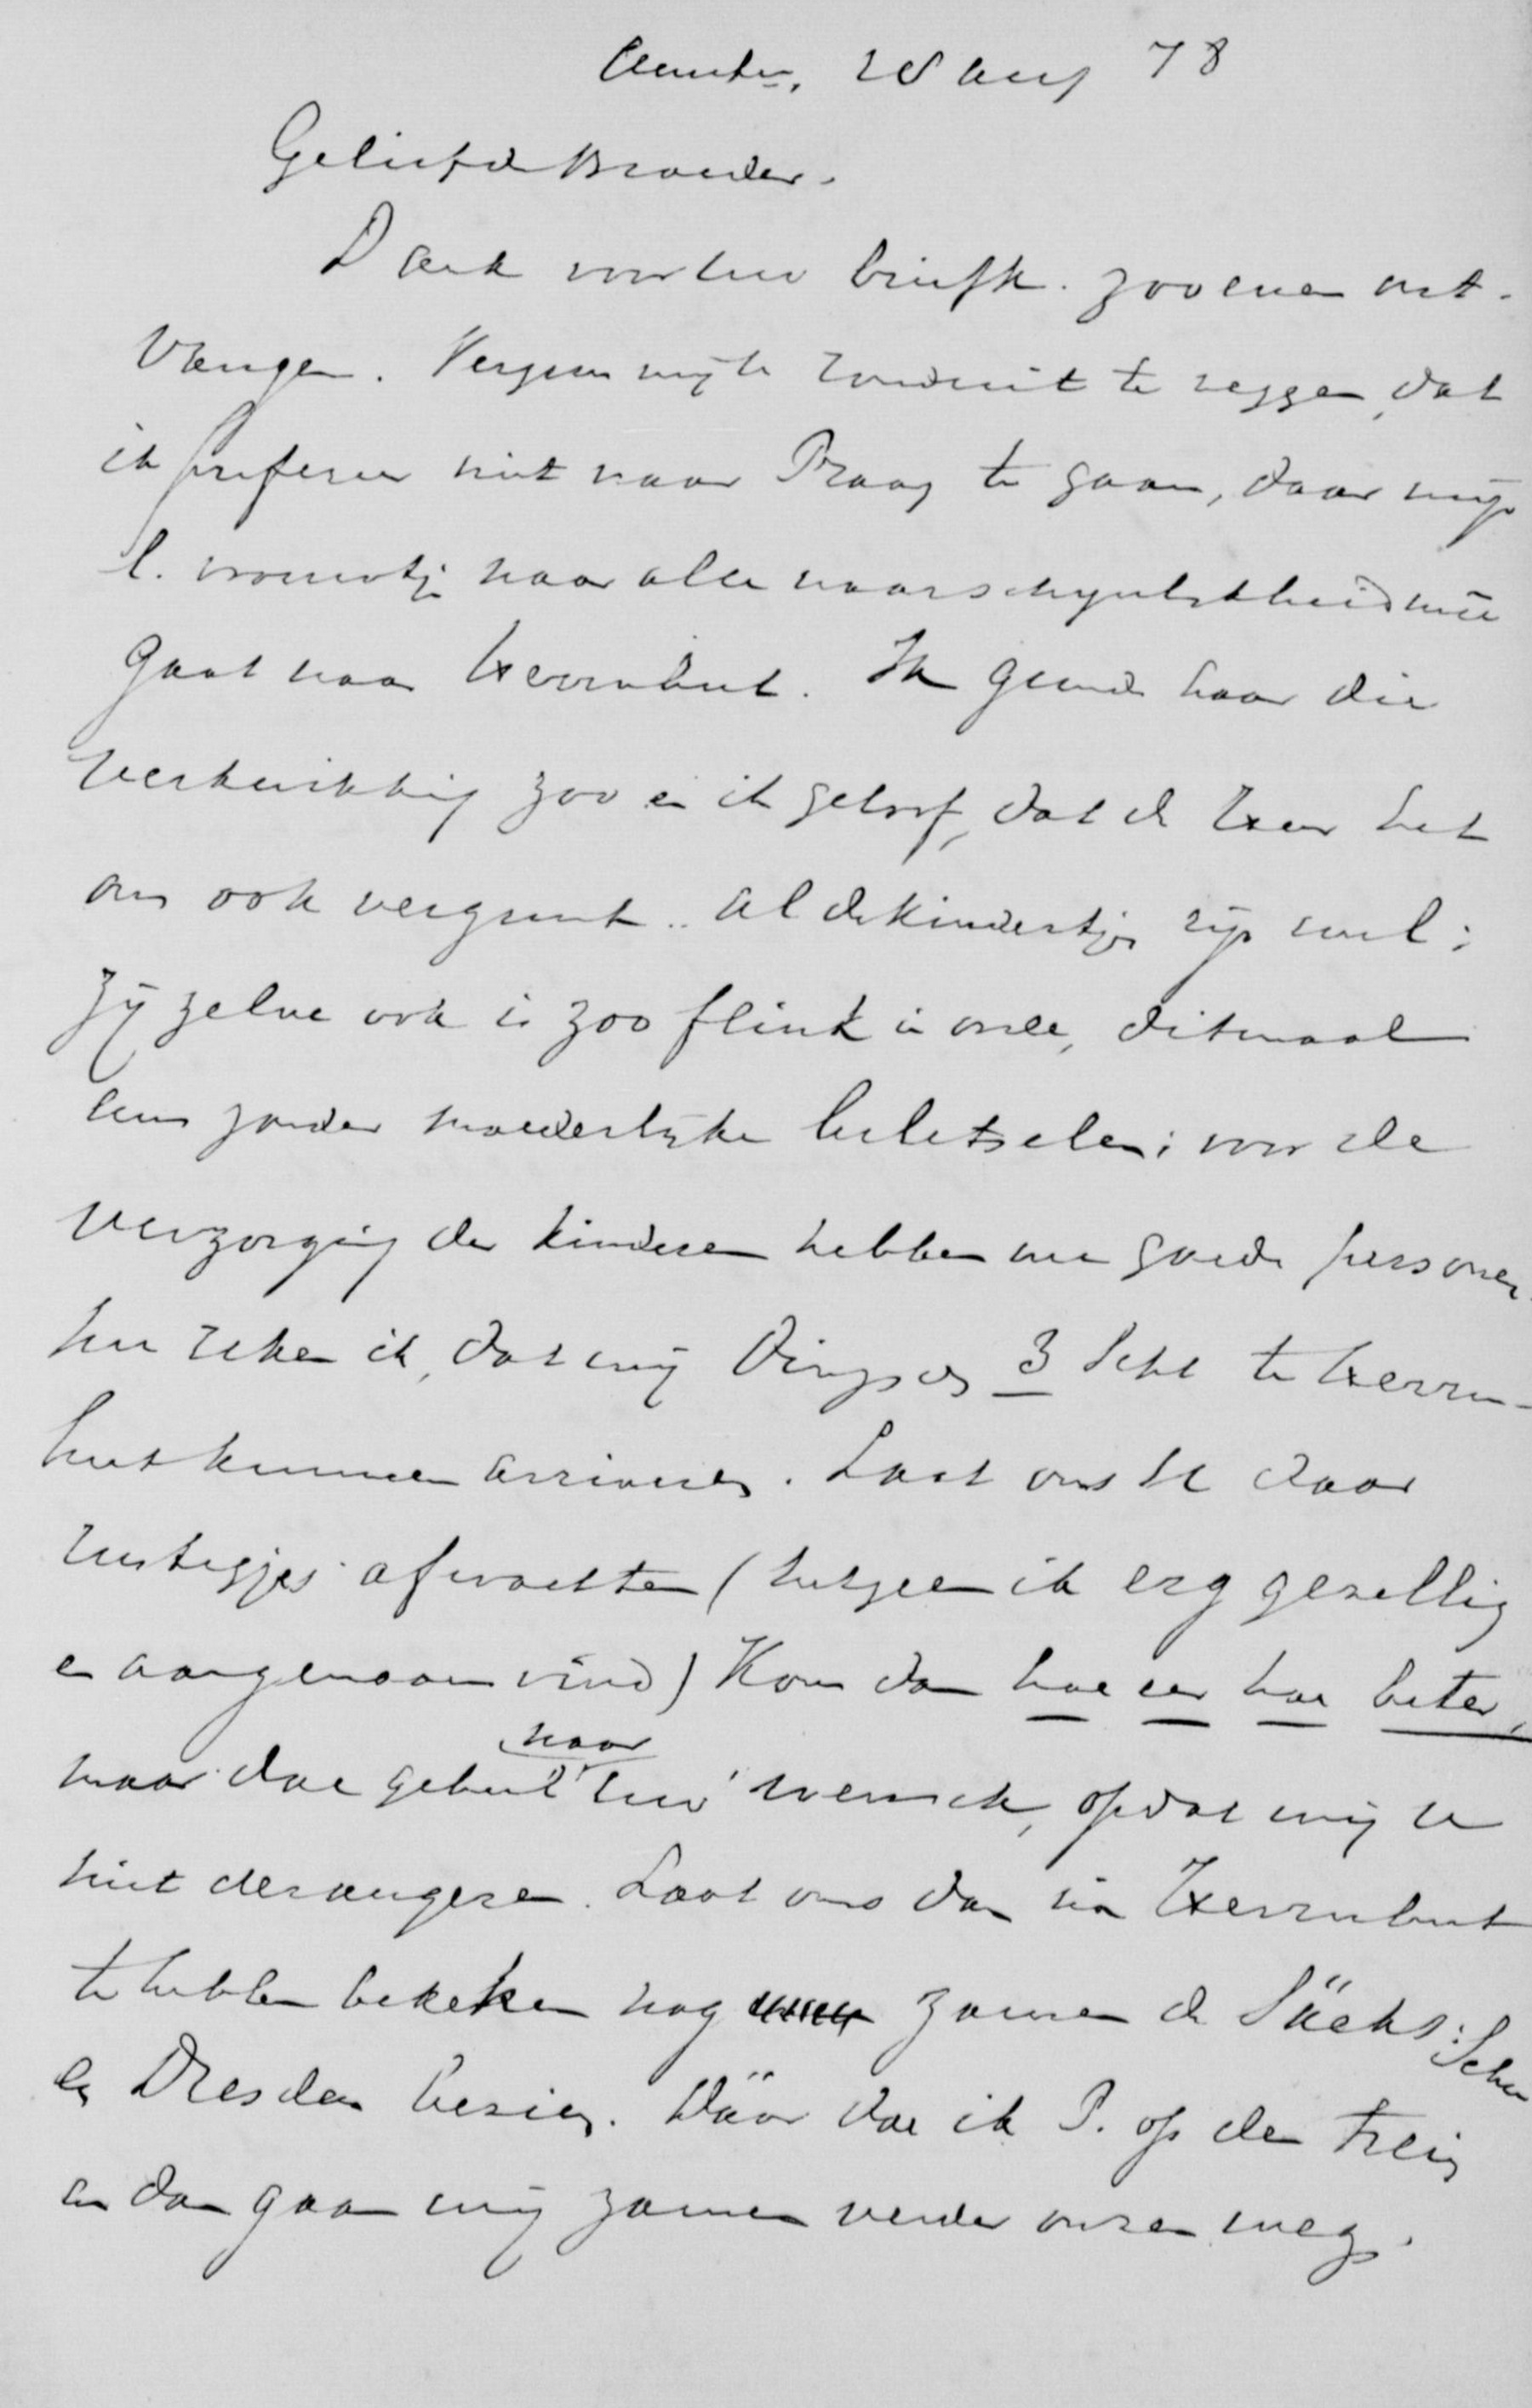 Amster., 28 aug 78
Geliefde Broeder.
Dank voor uw briefk. zooeven ont-
vangen. Vergun mij u ronduit te zeggen, dat
ik prefereer niet naar Praag te gaan, daar mijn
l. vrouwtje naar alle waarschynlykheid meê
gaat naar Herrnhut. Ik gunde haar die
verkwikking zoo en ik geloof, dat de Heer het
ons ook vergunt.. Al de kindertjes zijn wel;
Zij zelve ook is zoo flink en wel, ditmaal
eens zonder moederlyke beletselen; voor de
verzorging der kinderen hebben we goede personen.
Nu reken ik, dat wij Dingsdag 3 Sept te Herrn-
hut kunnen arriveren. Laat ons U daar
rustigjes afwachten (hetgeen ik erg gezellig
en aangenaam vind) Kom dan hoe eer hoe beter,
maar doe geheel naar uw wensch, opdat wij U
niet derangeren. Laat ons dan na Herrnhut
te hebben bekeken nog zamen de Sächs: Schw
en Dresden bezien. Dáár doe ik P. op den trein
en dan gaan wij zamen verder onzen weg.